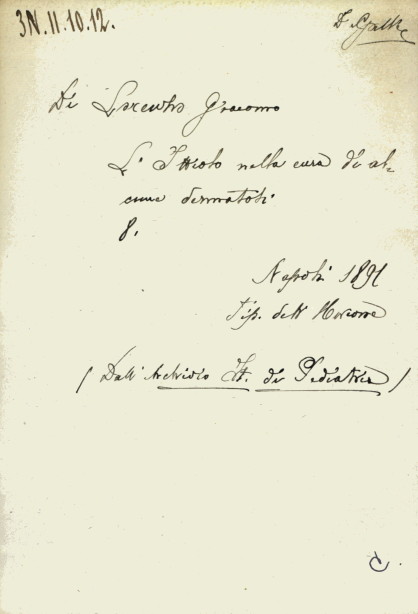 3N.11.10.12.
Di Lorenzo Giacomo
L' Ittiolo nella cura di al-
cune dermatosi
8.
Napoli 1891
Tip. dell'
( Dall' Archivio It. di Pediatria )
C.